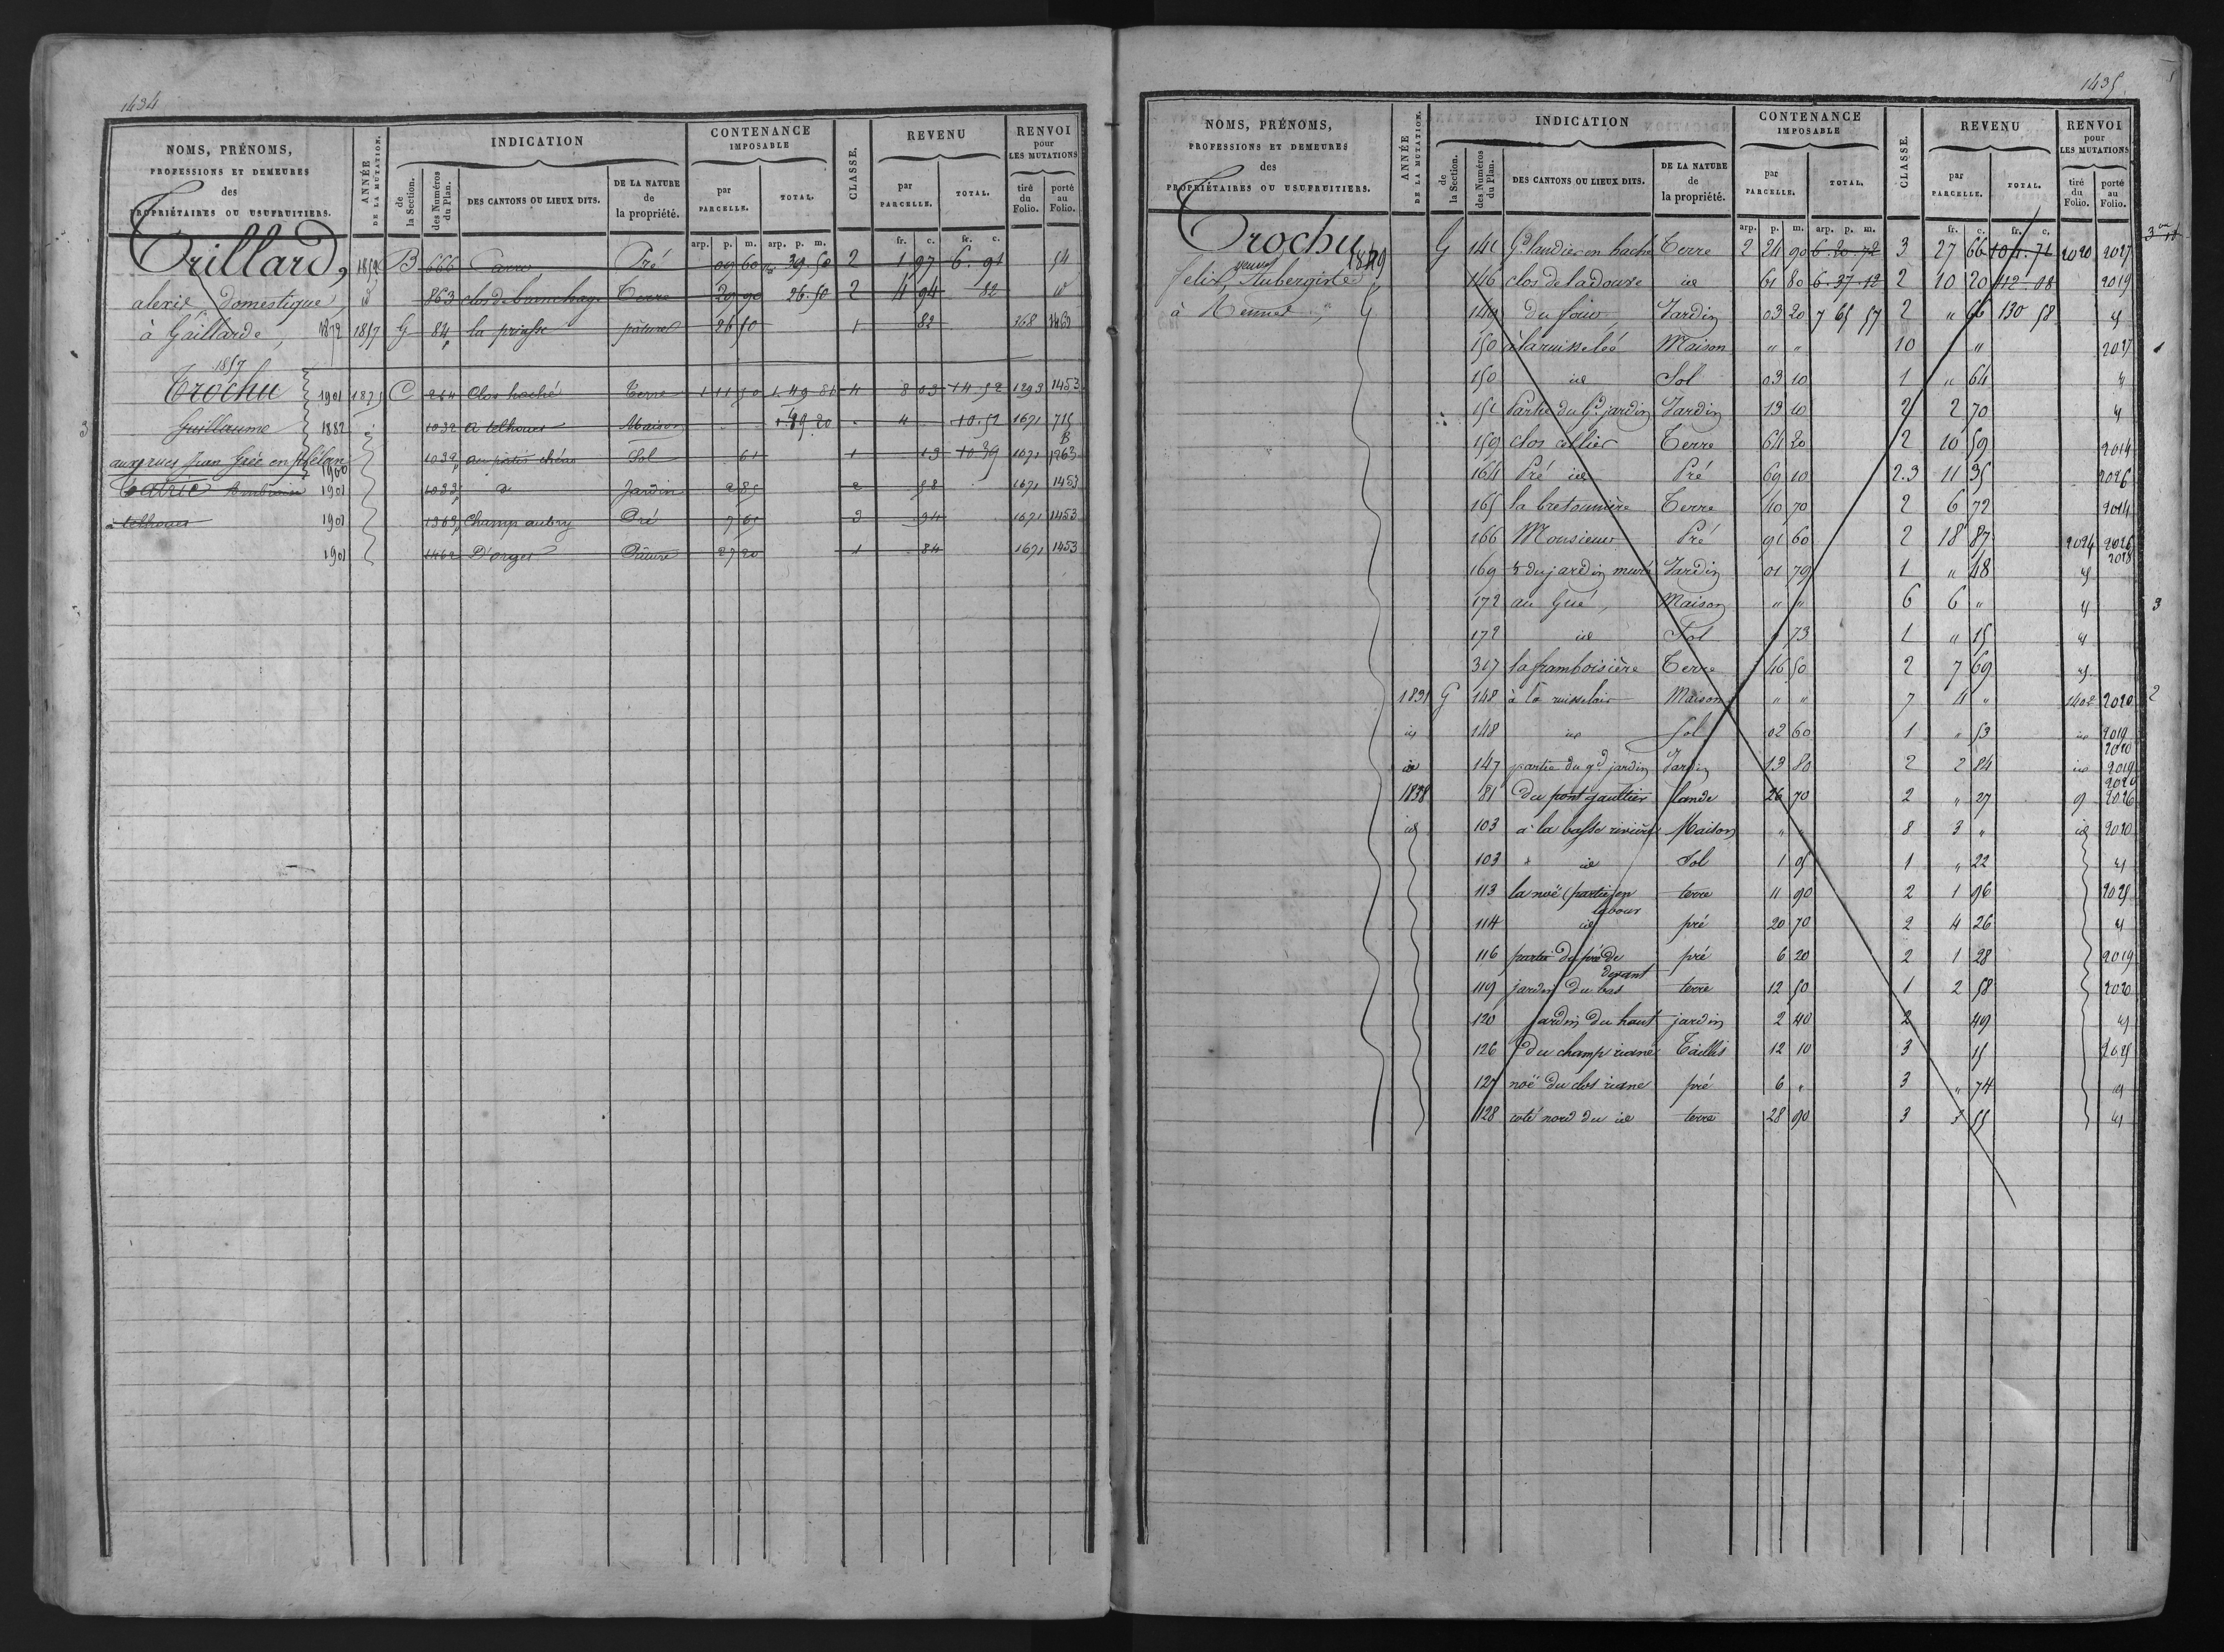 1434
NOMS, PRÉNOMS, PROFESSIONS ET DEMEURES des PROPRIÉTAIRES OU USUFRUITIERS.
ANNÉE DE LA MUTATION.
INDICATION
de la Section.
des Numéros du Plan.
DES CANTONS OU LIEUX DITS.
DE LA NATURE de la propriété.
CONTENANCE IMPOSABLE
par PARCELLE.
TOTAL.
CLASSE.
REVENU
par PARCELLE.
TOTAL.
RENVOI pour LES MUTATIONS
tiré du Folio.
porté au Folio.
arp. p. m. arp. p. m. fr. c. fr. c.
Trillard, 1859 B 666 Pré 09 60 39.50 2 1 97 6.91 54
alexis, domestique, id 863 Terre 29 90 26.50 2 4 94 82 id
à Gaillarde, 1872 1857 G 84 pâture 26 50 1 82 368 1463
1857
Trochu 1901 1875 C 264 Clos haché Terre 1 11 50 1.49.81 4 8 03 14.52 1293 1453
Guillaume 1882 1032 a telhouet Maison 1.49 20 4 10.52 1671 715
1032 Sol 61 1 13 10 39 1671 1263
1900
Ambroise 1901 1033 d Jardin 2 85 2 58 1671 1453
à telhouet 1901 1363 Champ aubry Pré 7 65 3 94 1671 1453
1901 1462 D'orges Pâture 27 20 1 84 1671 1453
3
1435
NOMS, PRÉNOMS, PROFESSIONS ET DEMEURES des PROPRIÉTAIRES OU USUFRUITIERS.
ANNÉE DE LA MUTATION.
INDICATION
de la Section.
des Numéros du Plan.
DES CANTONS OU LIEUX DITS.
DE LA NATURE de la propriété.
CONTENANCE IMPOSABLE
par PARCELLE.
TOTAL.
CLASSE.
REVENU
par PARCELLE.
TOTAL.
RENVOI pour LES MUTATIONS
tiré du Folio.
porté au Folio.
arp. p. m. arp. p. m. fr. c. fr. c.
Trochu 1849 G 141 Terre 2 24 90 6.20.72 3 27 66 104.71 2020 2027
Felix, veuve Aubergiste 146 clos de ladouve id 61 80 6.37.12 2 10 20 112.08 2019
à Rennes, 149 du four Jardin 03 20 7 65 57 2 " 66 130 58 id
150 à la ruisselée Maison " " 10 " 2027 1
150 id Sol 03 10 1 " 64 id
151 Partie du Gd jardin Jardin 13 10 2 2 70 id
159 clos cellier Terre 64 20 2 10 59 2014
164 Pré id Pré 69 10 2.3 11 35 2026
165 la bretonnière Terre 40 70 2 6 72 2014
166 Monsieur Pré 91 60 2 18 87 2024 2026 2028
169 du jardin muré Jardin 01 79 1 " 48 id
172 au Gué, Maison " " 6 6 " id 3
172 id Sol 73 1 " 15 id
317 la framboisière Terre 46 50 2 7 69 id
1831 G 148 à la ruisselais Maison " " 7 4 " 1402 2020 2
id 148 id Sol 02 60 1 " 53 id 2019 2020
id 147 partie du gd jardin Jardin 13 80 2 2 84 id 2019 2020
1838 81 du pont gaultier lande 26 70 2 " 27 9 2026
id 103 à la basse rivière Maison " " 8 3 " id 2020
103 id Sol 1 05 1 " 22 id
113 la noë (partie) en labour terre 11 90 2 1 96 2025
114 id pré 20 70 2 4 26 id
116 partie du pré de devant pré 6 20 2 1 28 2019
119 jardin du bas terre 12 50 1 2 58 2020
120 jardin du haut jardin 2 40 2 49 id
126 du champ riané Taillis 12 10 3 15 2025
127 noë du clos riané pré 6 " 3 " 74 id
128 coté nord du id terre 28 90 3 3 55 id